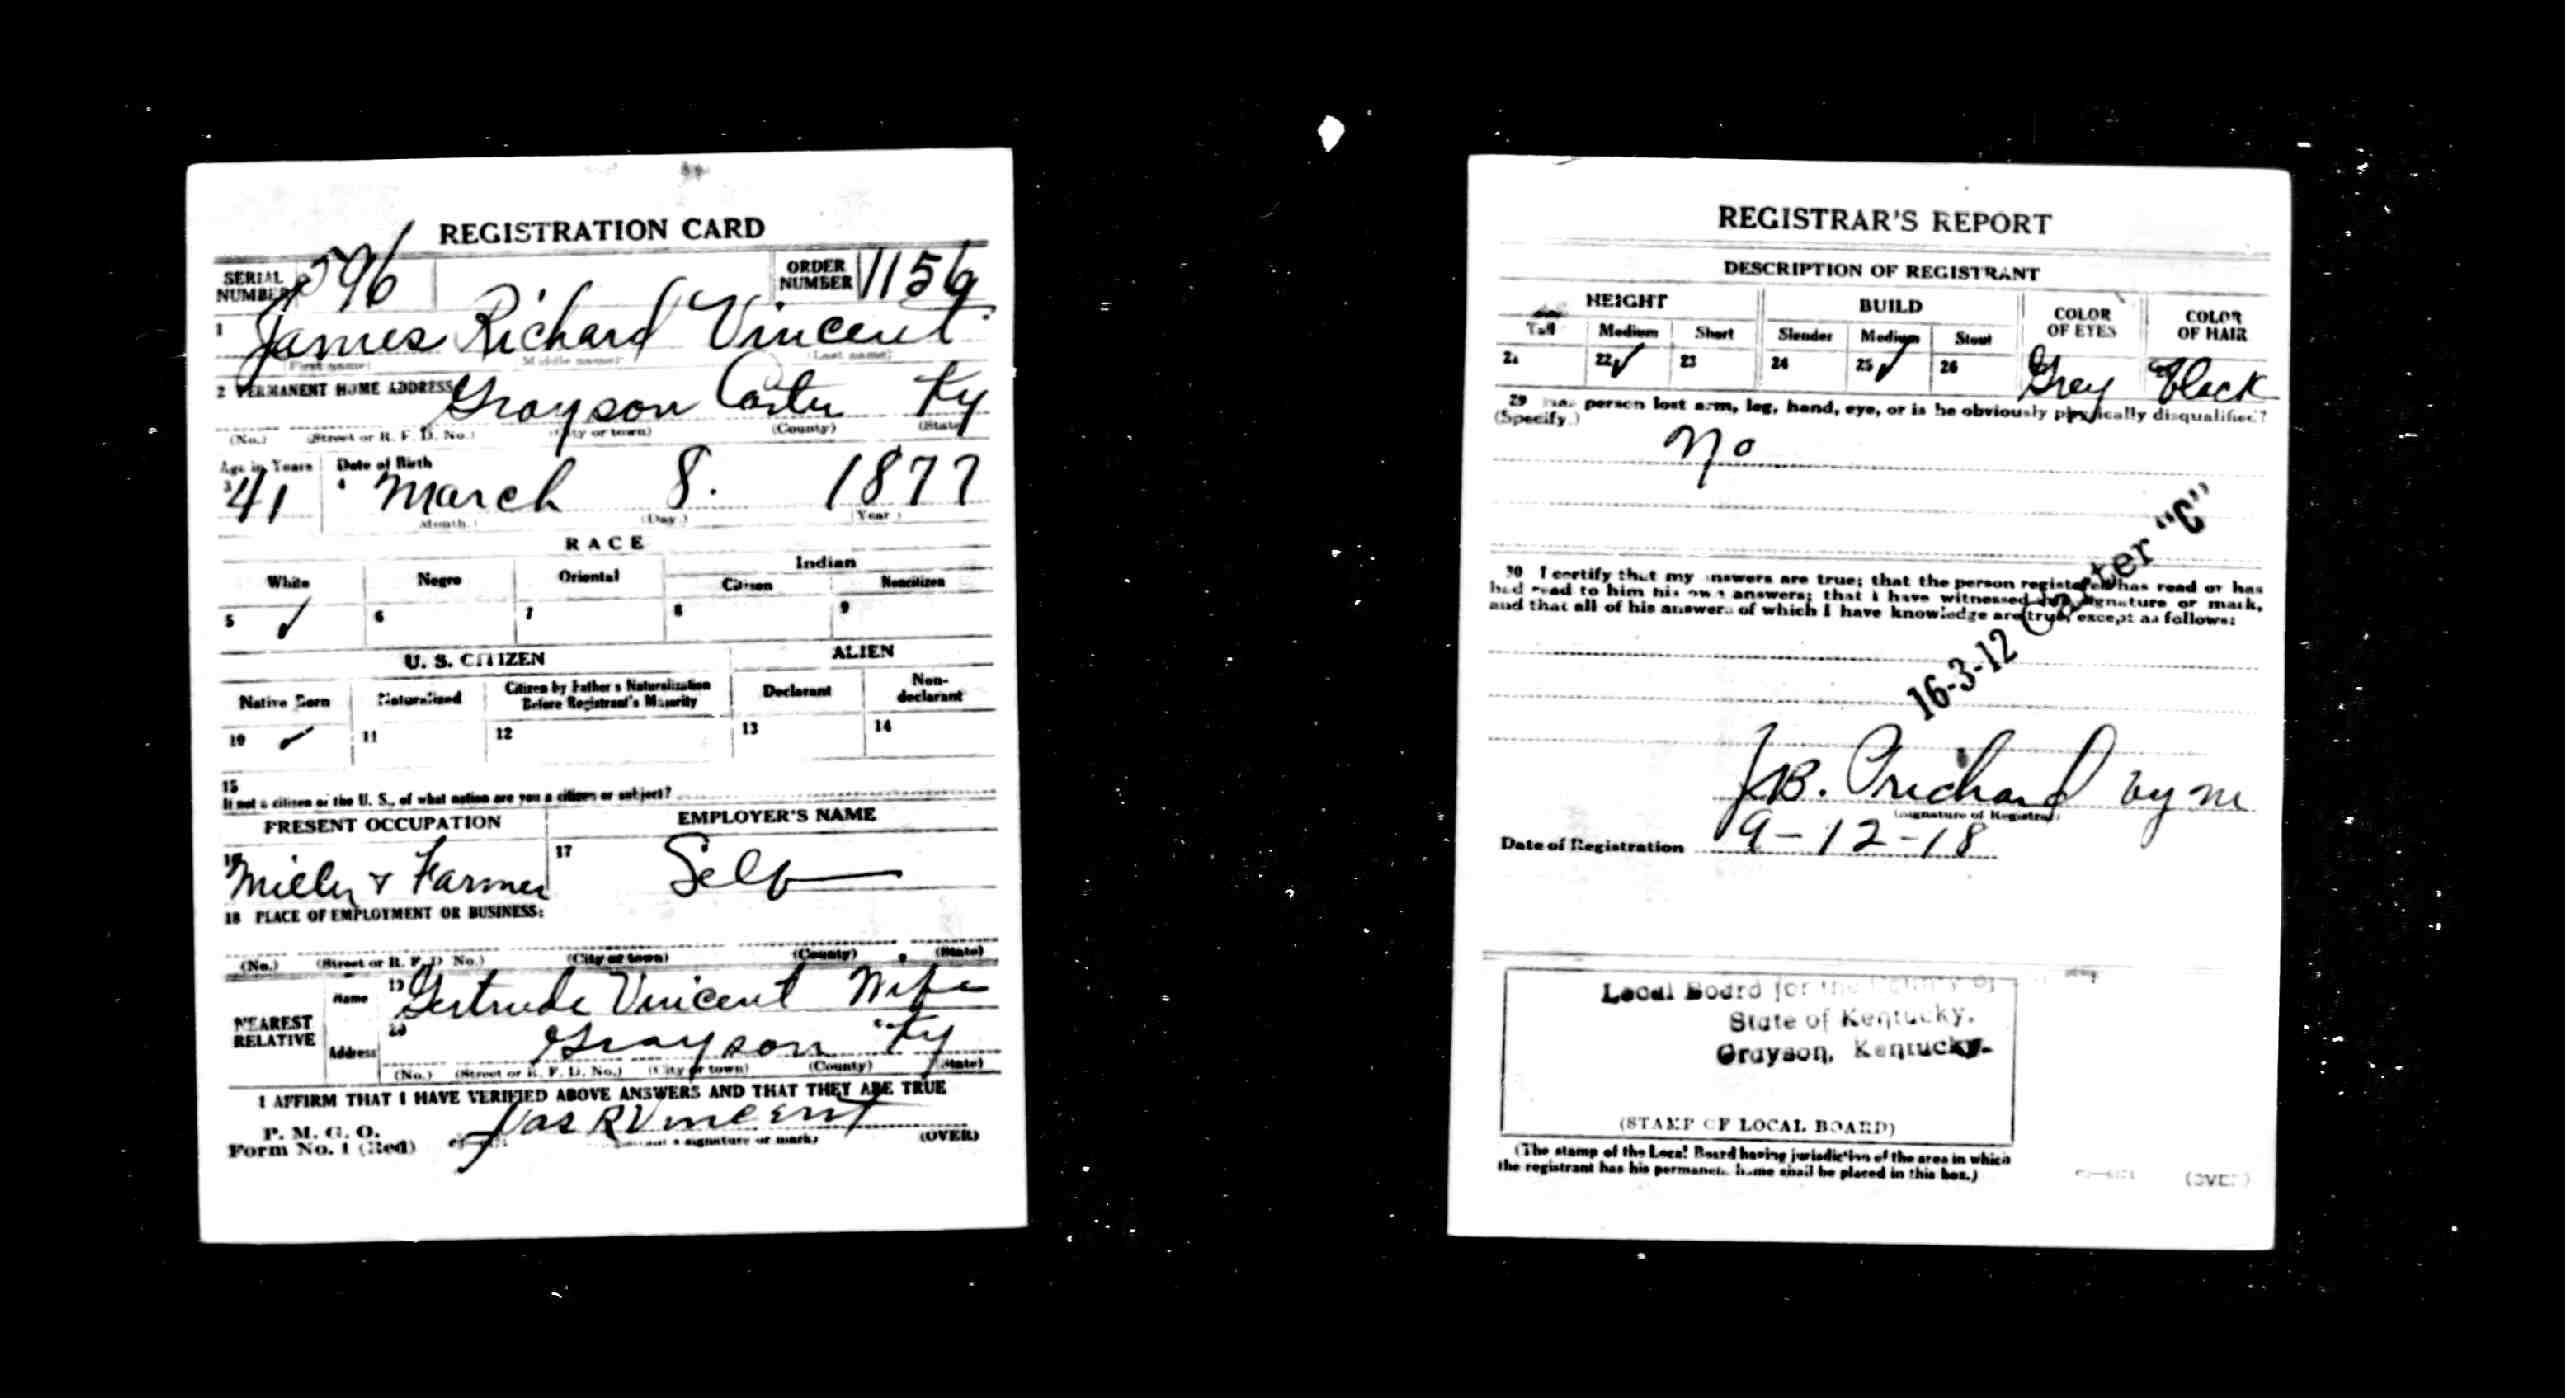 REGISTRATION CARD
SERIAL NUMBER 596 ORDER NUMBER 1156
1 James Richard Vincent
(First name) (Middle name) (Last name)
2 PERMANENT HOME ADDRESS Grayson Carter Ky
(No.) (Street or R. F. D. No.) (City or town) (County) (State)
Age in Years Date of Birth
3 41 4 March 8. 1877
(Month.) (Day.) (Year.)
RACE
White Negro Oriental Indian
Citizen Noncitizen
5 ✓ 6 7 8 9
U. S. CITIZEN ALIEN
Native Born Naturalized Citizen by Father's Naturalization Before Registrant's Majority Declarant Non-declarant
10 ✓ 11 12 13 14
15
If not a citizen of the U. S., of what nation are you a citizen or subject?
PRESENT OCCUPATION EMPLOYER'S NAME
16 Miller & Farmer 17 Self
18 PLACE OF EMPLOYMENT OR BUSINESS:
(No.) (Street or R. F. D. No.) (City or town) (County) (State)
NEAREST RELATIVE Name 19 Gertrude Vincent Wife
Address 20 Grayson Ky
(No.) (Street or R. F. D. No.) (City or town) (County) (State)
I AFFIRM THAT I HAVE VERIFIED ABOVE ANSWERS AND THAT THEY ARE TRUE
P. M. G. O.
Form No. 1 (Red) Jas R Vincent
signature or mark) (OVER)
REGISTRAR'S REPORT
DESCRIPTION OF REGISTRANT
HEIGHT BUILD COLOR OF EYES COLOR OF HAIR
Tall Medium Short Slender Medium Stout
21 22 ✓ 23 24 25 ✓ 26 Grey Black
29 Has person lost arm, leg, hand, eye, or is he obviously physically disqualified?
(Specify.)
No
30 I certify that my answers are true; that the person registered has read or has
had read to him his own answers; that I have witnessed his signature or mark,
and that all of his answers of which I have knowledge are true, except as follows:
16-3-12 Carter "C"
J.B. Prichard by m
(Signature of Registrar)
Date of Registration 9-12-18
Local Board for the County of
State of Kentucky.
Grayson, Kentucky.
(STAMP OF LOCAL BOARD)
(The stamp of the Local Board having jurisdiction of the area in which
the registrant has his permanent home shall be placed in this box.)
(OVER)